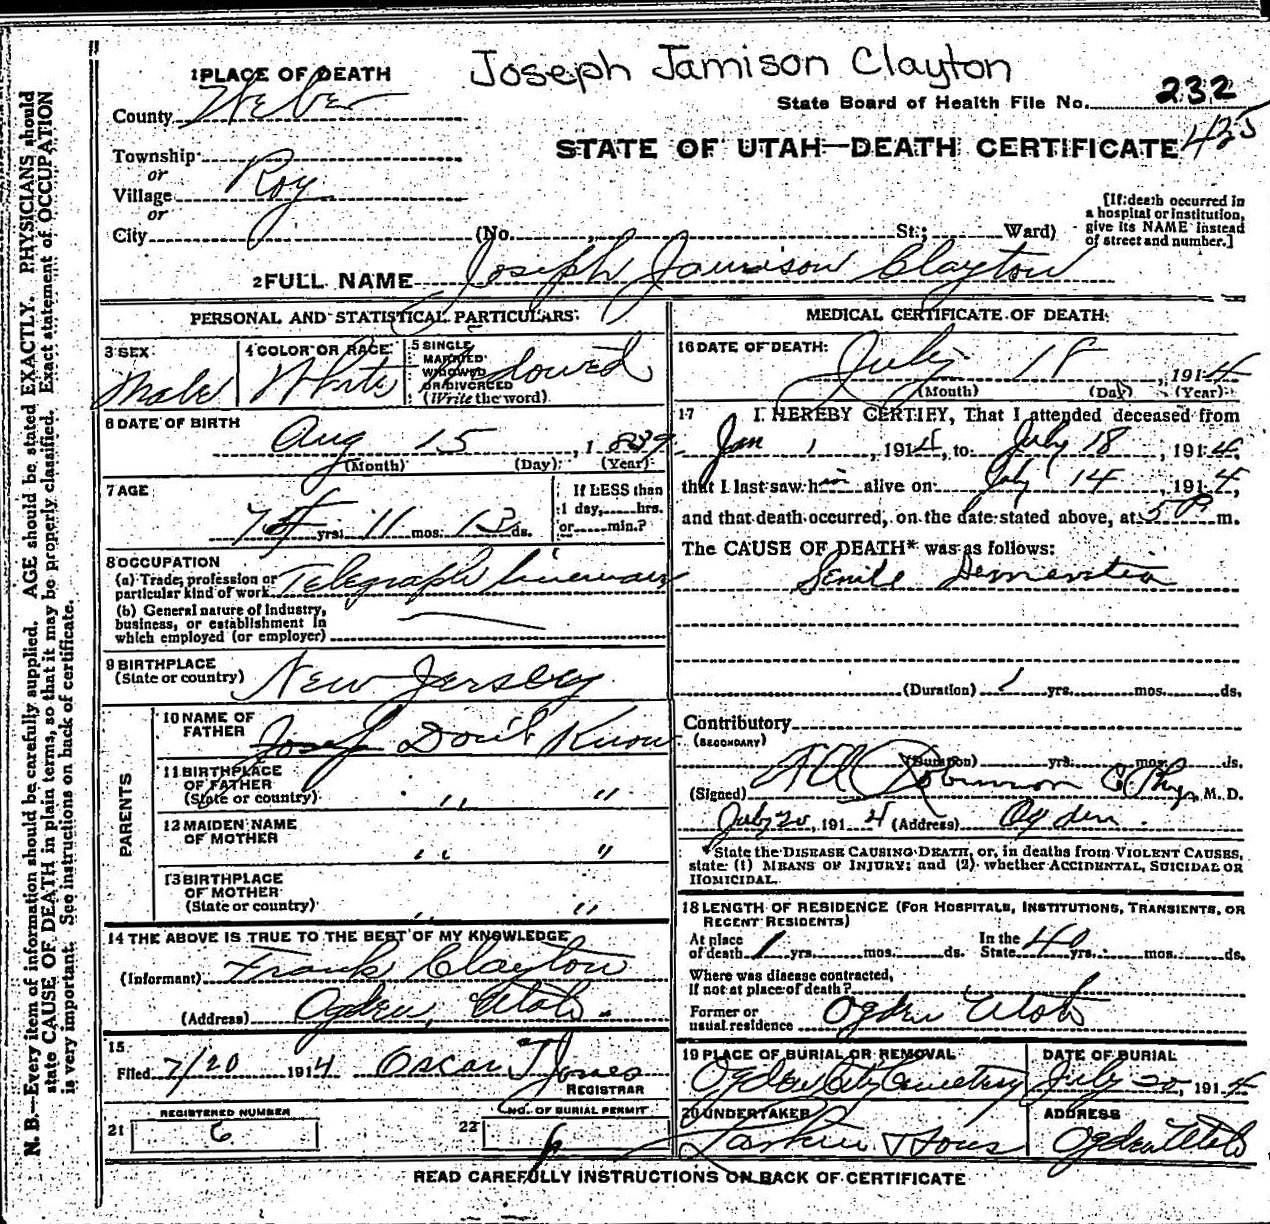 Joseph Jamison Clayton
1 PLACE OF DEATH
State Board of Health File No. 232
County Weber
STATE OF UTAH—DEATH CERTIFICATE 425
Township
or
Village Roy
or
City (No. , St.; Ward)
[If death occurred in a hospital or institution, give its NAME instead of street and number.]
2 FULL NAME Joseph Jamison Clayton
PERSONAL AND STATISTICAL PARTICULARS
3 SEX Male
4 COLOR OR RACE White
5 SINGLE MARRIED WIDOWED OR DIVORCED (Write the word) Widowed
6 DATE OF BIRTH Aug 15, 1839
(Month) (Day) (Year)
7 AGE yrs. 11 mos. 13 ds.
If LESS than 1 day, hrs. or min.?
8 OCCUPATION
(a) Trade, profession or particular kind of work Telegraph lineman
(b) General nature of Industry, business, or establishment in which employed (or employer)
9 BIRTHPLACE (State or country) New Jersey
PARENTS
10 NAME OF FATHER Don't Know
11 BIRTHPLACE OF FATHER (State or country) " "
12 MAIDEN NAME OF MOTHER " "
13 BIRTHPLACE OF MOTHER (State or country) " "
14 THE ABOVE IS TRUE TO THE BEST OF MY KNOWLEDGE
(Informant) Frank Clayton
(Address) Ogden, Utah.
15
Filed 7/20 1914 Oscar T Jones
REGISTRAR
21 REGISTERED NUMBER 6
22 NO. OF BURIAL PERMIT 6
MEDICAL CERTIFICATE OF DEATH
16 DATE OF DEATH: July 18, 1914
(Month) (Day) (Year)
17 I HEREBY CERTIFY, That I attended deceased from
Jan 1, 1914, to July 18, 1914,
that I last saw him alive on July 14, 1914,
and that death occurred, on the date stated above, at 5 P m.
The CAUSE OF DEATH* was as follows:
Senile Dementia
(Duration) 1 yrs. mos. ds.
Contributory
(SECONDARY)
(Duration) yrs. mos. ds.
(Signed) Robinson Co Phys, M. D.
July 20, 1914 (Address) Ogden.
*State the DISEASE CAUSING DEATH, or, in deaths from VIOLENT CAUSES, state (1) MEANS OF INJURY; and (2) whether ACCIDENTAL, SUICIDAL OR HOMICIDAL.
18 LENGTH OF RESIDENCE (FOR HOSPITALS, INSTITUTIONS, TRANSIENTS, OR RECENT RESIDENTS)
At place of death 1 yrs. mos. ds. In the State 40 yrs. mos. ds.
Where was disease contracted, if not at place of death?
Former or usual residence Ogden Utah
19 PLACE OF BURIAL OR REMOVAL Ogden City Cemetery
DATE OF BURIAL July 20, 1914
20 UNDERTAKER Larkin & Sons
ADDRESS Ogden Utah
READ CAREFULLY INSTRUCTIONS ON BACK OF CERTIFICATE
N. B.—Every item of information should be carefully supplied. AGE should be stated EXACTLY. PHYSICIANS should
state CAUSE OF DEATH in plain terms, so that it may be properly classified. Exact statement of OCCUPATION
is very important. See instructions on back of certificate.